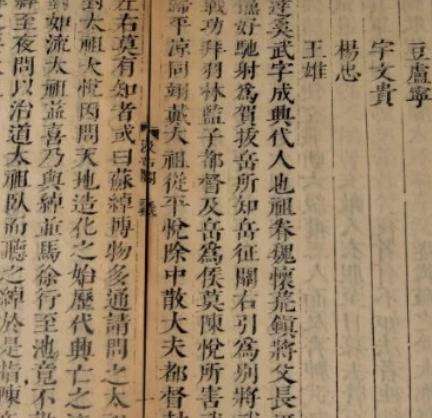 豆盧寧
宇文貴
楊忠
王雄
達奚武字成興代人也祖眷魏懷荒鎮將父長
儻好馳射為賀拔岳所知岳征關右引為別將
戰功拜羽林監子都督及岳為侯莫陳悅所害
歸平涼同翊戴太祖從平悅除中散大夫都督封
汲古閣
左右莫有知者或曰蘇綽博物多通請問之太
太祖大悅因問天地造化之始歷代興亡之
對如流太祖益喜乃與綽並馬徐行至池竟不
綽至夜問以治道太祖臥而聽之綽於是指陳